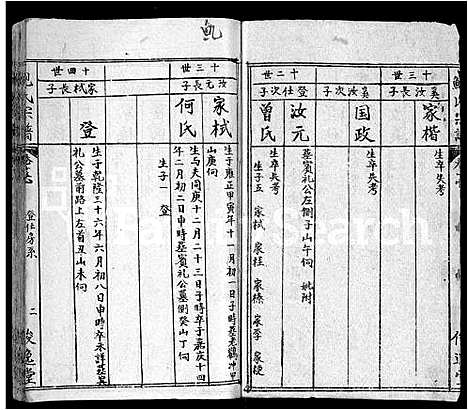 鮑
十三世
家楷
生卒失考
奚汝次子
国政
生卒失考
十二世
登仕次子
汝元
葬賓礼公左側子山午向 妣附
曾氏
生卒長考
生子五 家栻 家桂 家榛 家季 家梗
十三世
汝元長子
家栻
生于雍正甲寅年十一月初一日子時葬老鶴冲甲
山庚向
何氏
生与夫同庚十二月二十三日子時卒于嘉庆十四
年二月初二日申時葬賓礼公墓側癸山丁向
生子一 登
十四世
家栻長子
登
生于乾隆三十六年六月初八日申時卒未詳葬賓
礼公墓前路上左首丑山未向
鮑氏宗譜
登仕房系
二